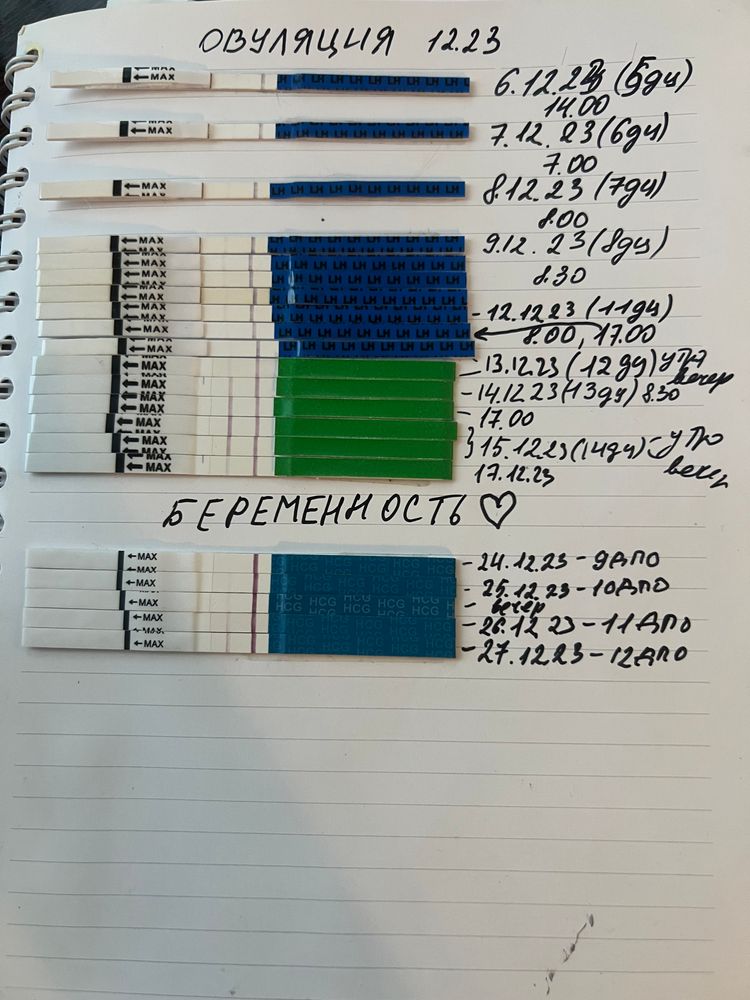 ОВУЛЯЦИЯ 12.23
←MAX LH LH LH LH LH LH LH LH LH
6.12.23 (5дц)
14.00
←MAX
7.12.23 (6дц)
7.00
←MAX LH LH LH LH LH LH LH LH LH
8.12.23 (7дц)
8.00
←MAX
9.12.23 (8дц)
←MAX
8.30
←MAX
←MAX
-12.12.23 (11дц)
←MAX
8.00, 17.00
←MAX
←MAX
-13.12.23 (12дц) утро
вечер
←MAX
-14.12.23 (13дц) 8.30
←MAX
-17.00
←MAX
←MAX
15.12.23 (14дц) - утро
вечер
←MAX
17.12.23
БЕРЕМЕННОСТЬ ♡
←MAX
-24.12.23 - 9ДПО
←MAX
←MAX
-25.12.23 - 10ДПО
←MAX HCG HCG HCG HCG HCG
- вечер
←MAX
-26.12.23 - 11ДПО
←MAX
-27.12.23 - 12ДПО